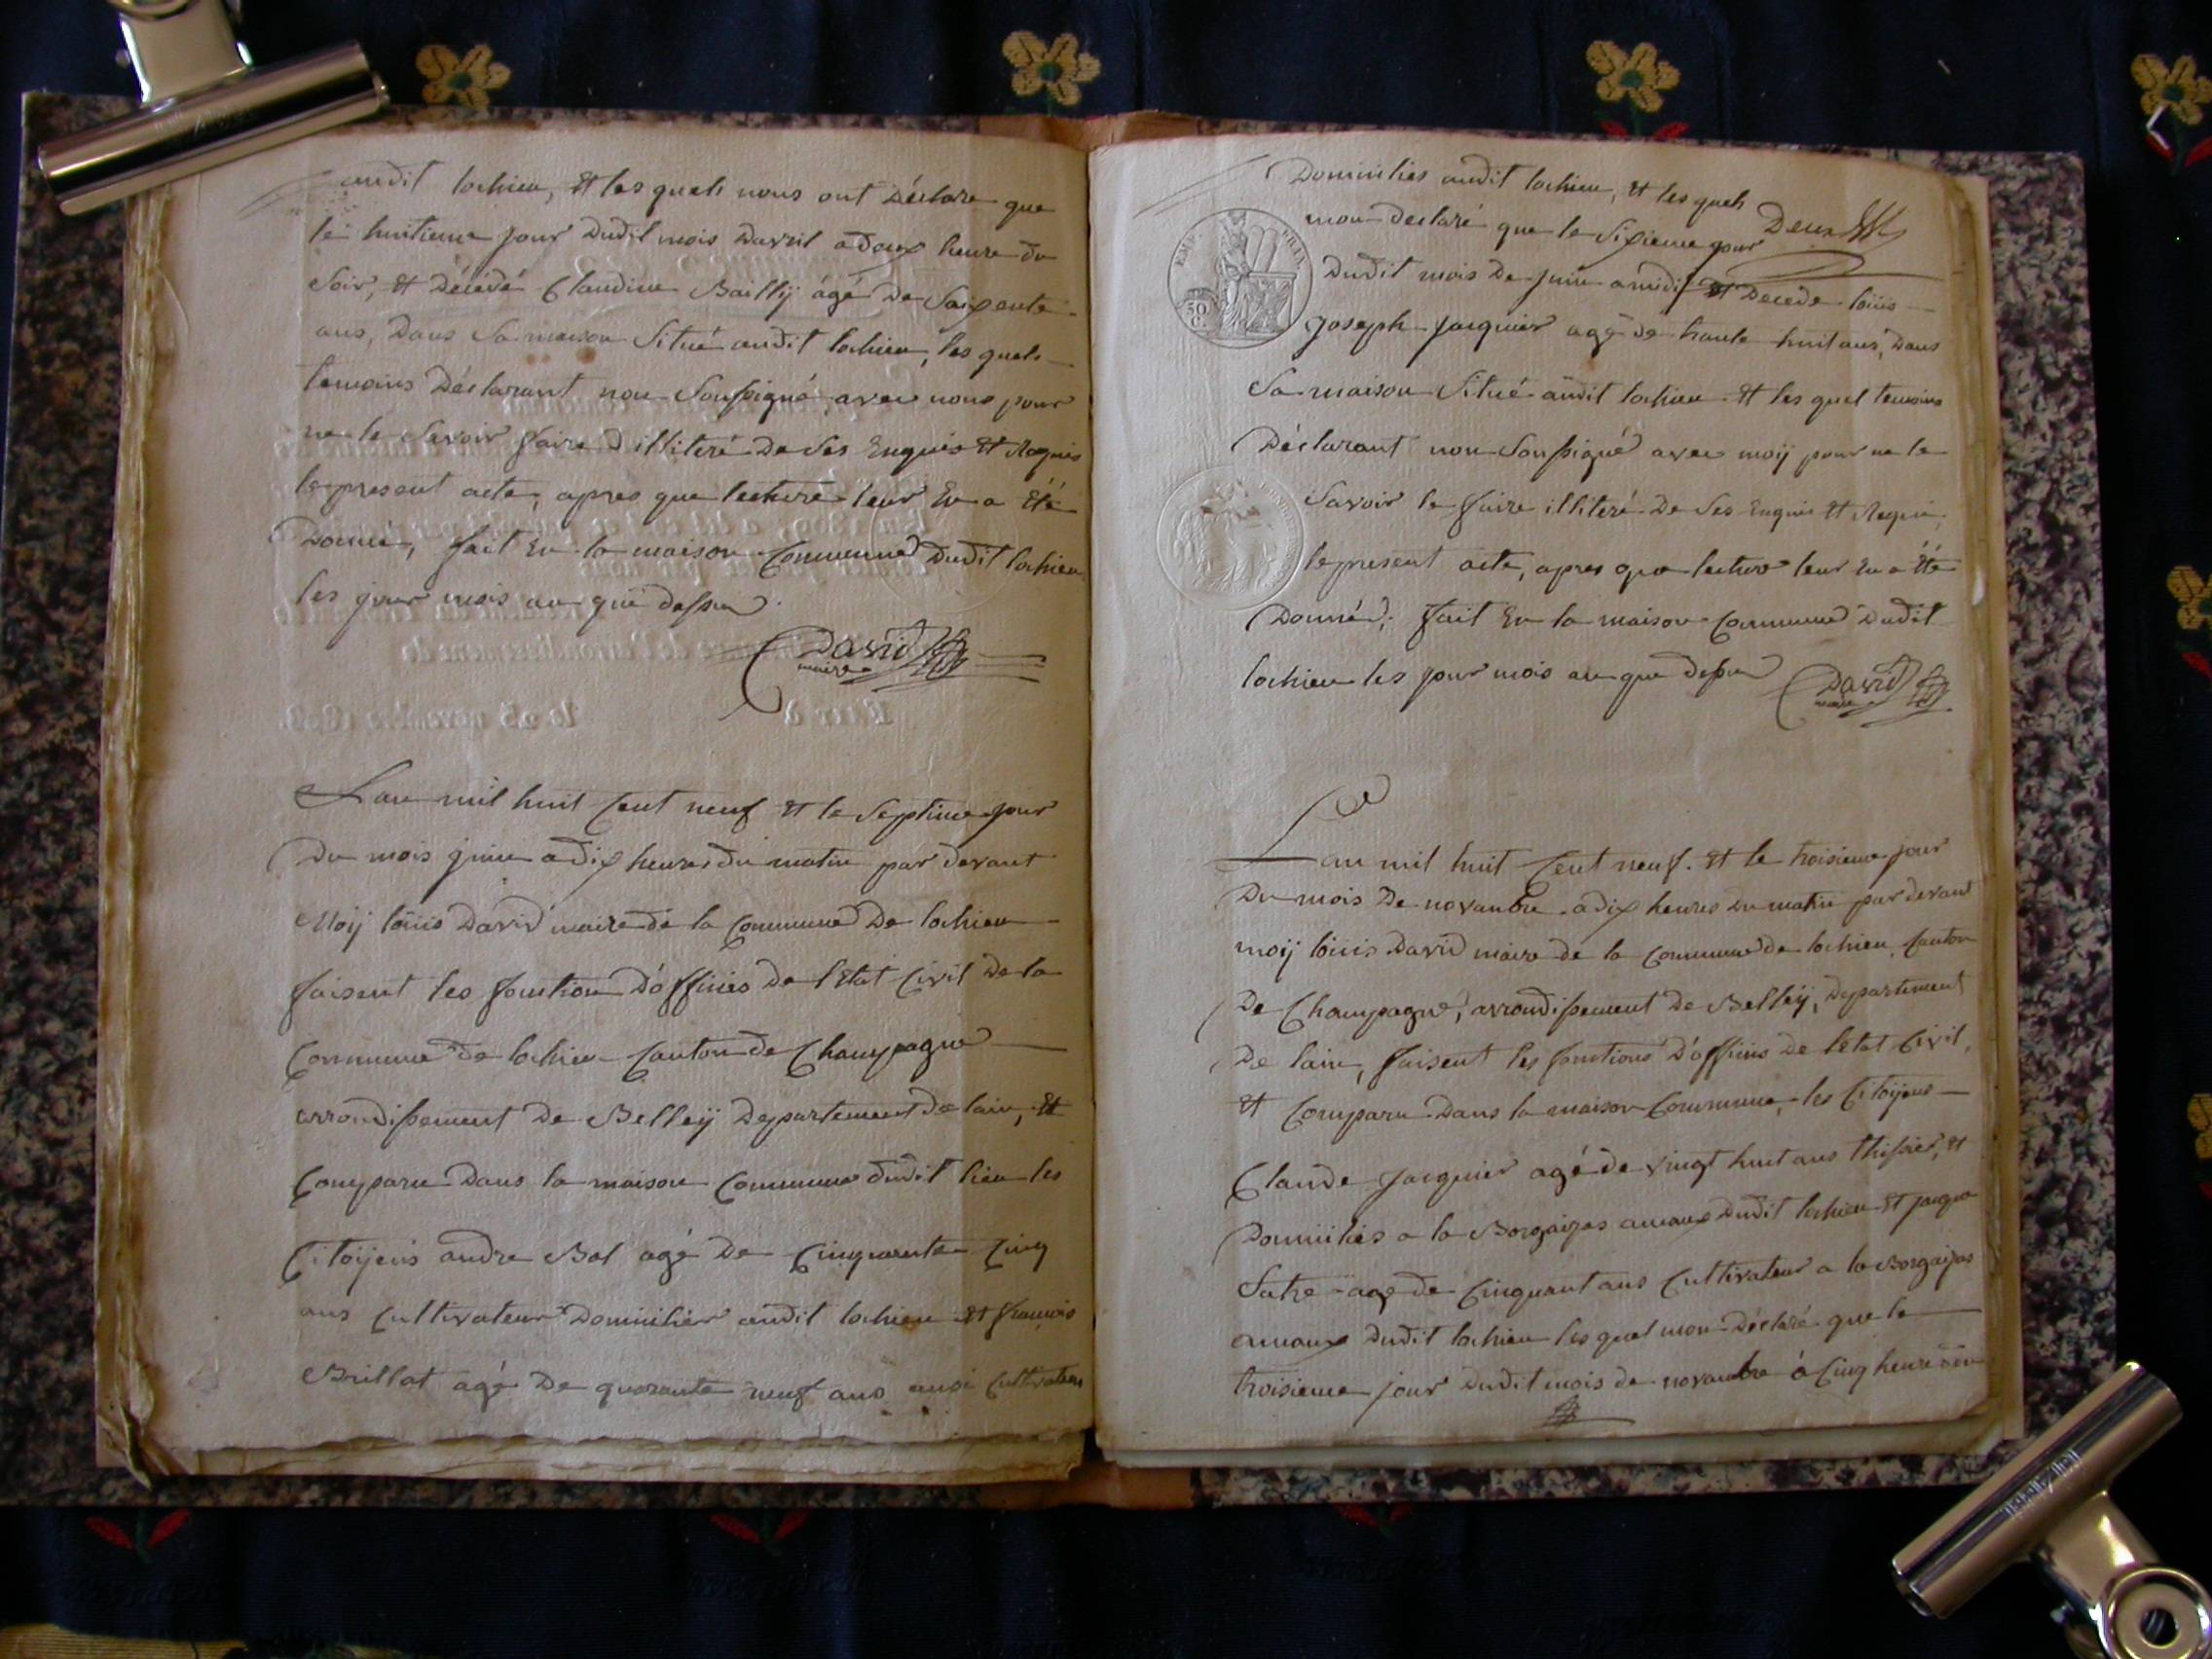 audit lochieu, Et les quels nous ont Déclare que
le huitieme jour Dudit mois Davril a Deux heure du
soir, et Décédé Claudine Baillÿ ágé De Soixente
ans, Dans Sa maison Situé audit lochieu, les quels
temoins Déclarant non Soussigné avec nous pour
ne le Savoir faire d illiteré De Ses Enquis Et Requis
le present acte, apres que lecture leur En a Eté
Donné, fait En la maison Commune Dudit lochieu
les jour mois an que dessu
David
maire
Lan mil huit Cent neuf Et le Septime jour
Du mois juin a Dix heures du matin par devant
Moÿ loüis David maire de la Commune De lochieu
faisent les fontion D'officiés De l'Etat Civil De la
Commune de lochieu Canton de Champagne
arrondissement De Belleÿ Departement De lain, Et
Comparu Dans la maison Commune dudit lieu les
Citoÿens andre Bal agé De Cinquante Cinq
ans Cultivateur Domicilier audit lochieu Et francois
Brillat agé De quarante neuf ans ausi Cultivateur
Domiciliés audit lochieu, Et les quels
mon declaré que le Sixieme jour
Deux
Dudit mois De juin a midi Et Décede loüis
Joseph Jacquier agé de trante huit ans, Dans
Sa maison Situé audit lochieu Et les quel temoins
Déclarant non Soussigné avec moÿ pour ne le
Savoir le faire illiteré De Ses Enquis Et Requis
le present acte, apres que lecture leur En a Eté
Donné, fait En la maison Commune Dudit
lochieu les jour mois an que dessu
David
maire
EMP. FRAN.
50
C.
Lan mil huit Cent neuf. Et le troisieme jour
Du mois De novanbre a dix heures Du matin par devant
moÿ loüis David maire de la Commune de lochieu Canton
De Champagne, arrondissement De Belleÿ, Departement
De lain, faisent les fontions D'officiés De letat Civil,
Et Comparu Dans la maison Commune, les Citoÿens
Claude Jacquier agé de vingt huit ans thissier, Et
Domiciliés a la Dudit lochieu Et
agé de Cinquant ans Cultivateur a la
Dudit lochieu les quel mon Déclaré que le
troisieme jour Dudit mois de novanbre á Cinq heure du